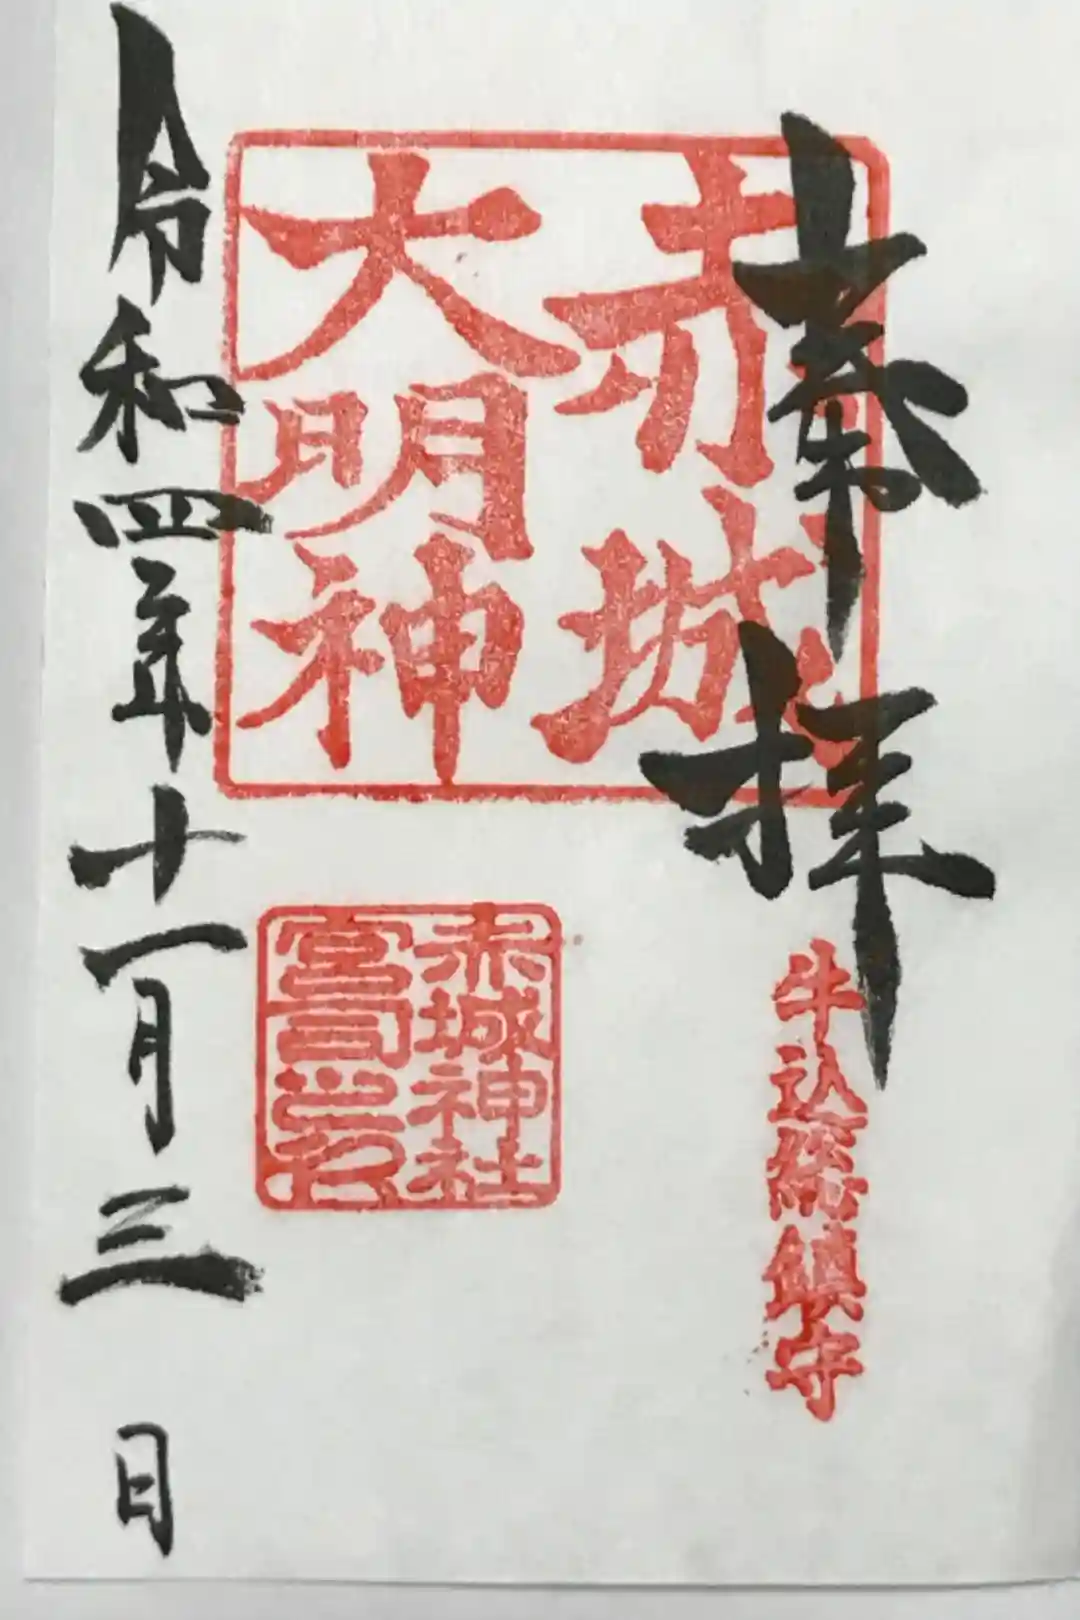 奉拝
牛込総鎮守
赤城
大明神
赤城神社
宮司之印
令和四年十一月三日